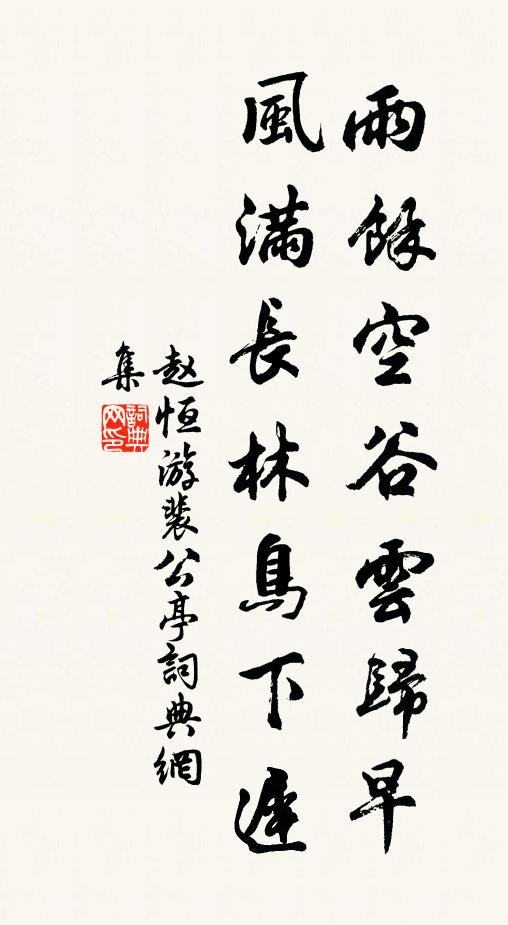 雨餘空谷雲歸早
風滿長林鳥下遲
赵恒游裴公亭詞典網
集
詞典
网印